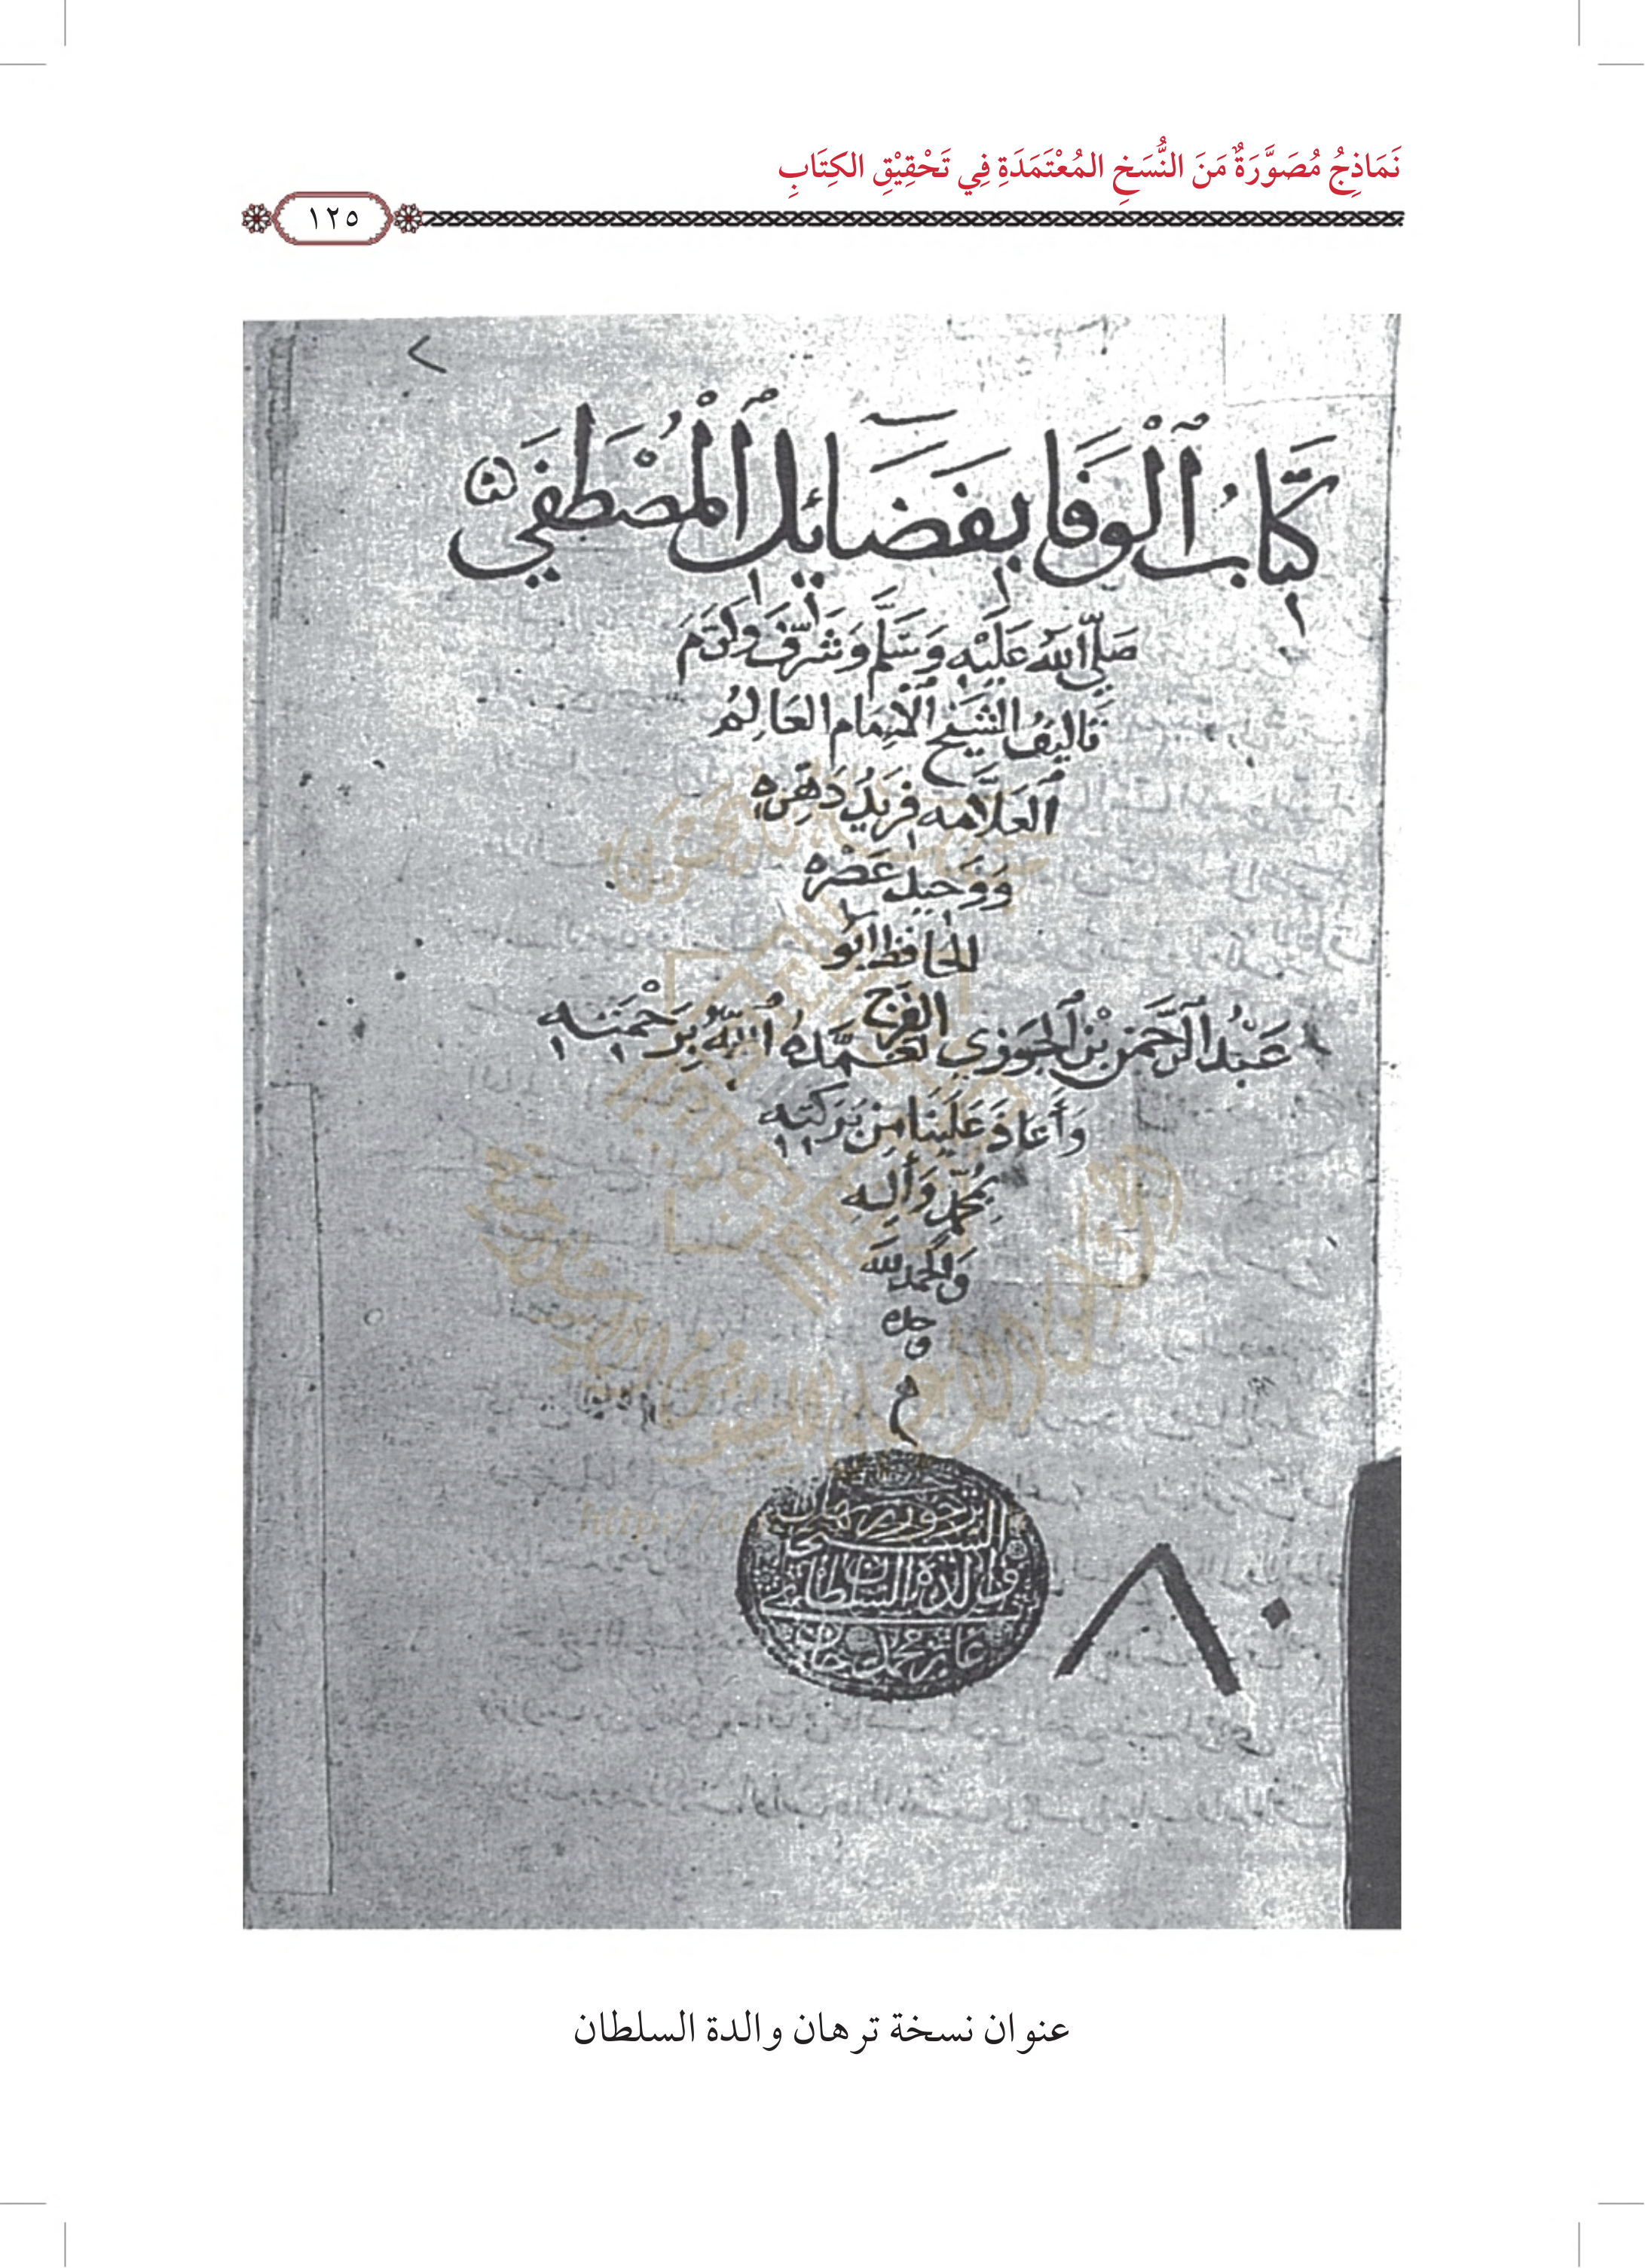 نَمَاذِجُ مُصَوَّرَةٌ مَنَ النُّسَخِ المُعْتَمَدَةِ فِي تَحْقِيْقِ الكِتَابِ
١٢٥
كِتَابُ الْوَفَا بِفَضَائِلِ الْمُصْطَفَى
صَلَّى اللهُ عَلَيْهِ وَسَلَّمَ وَشَرَّفَ وَكَرَّمَ
تَالِيفُ الشَّيْخِ الْاِمَامِ العَالِمِ
العَلَّامَه فَرِيْدُ دَهْرِه
وَوَحِيدِ عَصْرِه
الحافظ ابو
الفرج
عَبْدُ الرَّحْمَنِ بْنِ الْجَوْزِي تَغَمَّدَهُ اللهُ بِرَحْمَتِهِ
وَأَعَادَ عَلَيْنَا مِنْ بَرَكَتِهِ
بِمُحَمَّدٍ وَأَلِهِ
وَالْحَمْدُ لله
وحده
والدة السلطان
محمد خان
٨٠
عنوان نسخة ترهان والدة السلطان